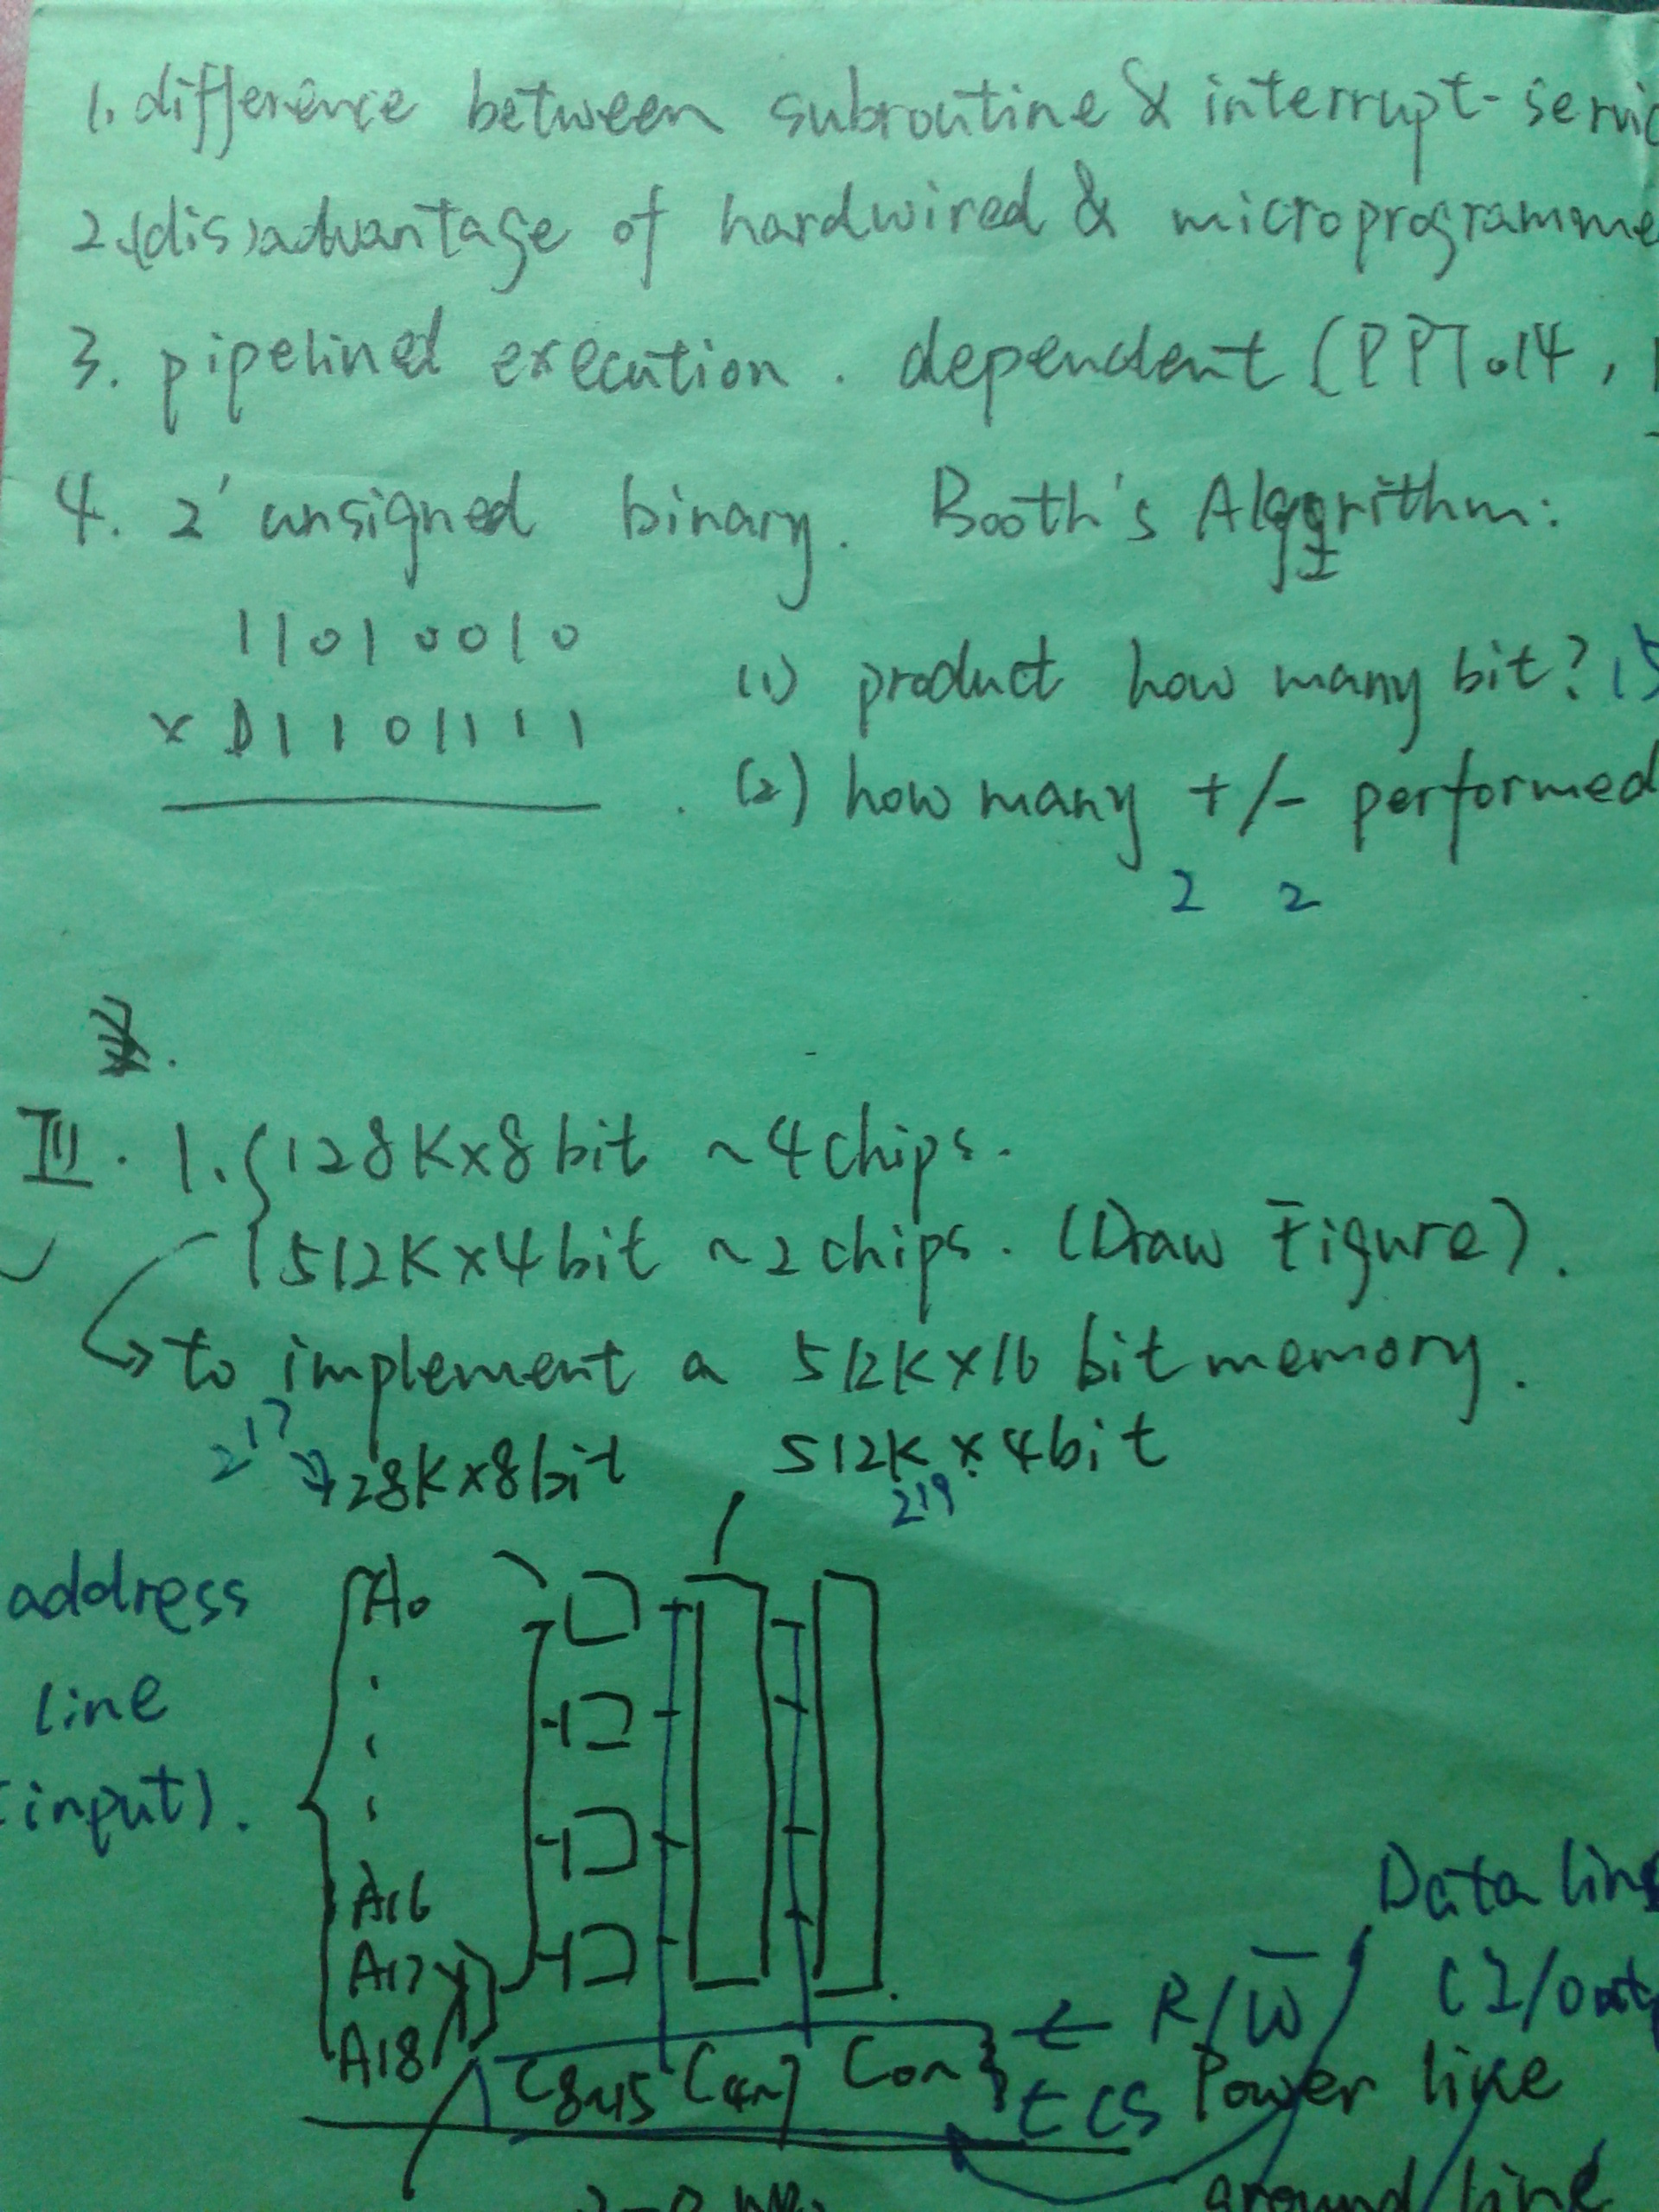 1. difference between subroutine & interrupt-servic
2. (dis)advantage of hardwired & microprogramme
3. pipelined execution. dependent (PPT.14,
4. 2' unsigned binary. Booth's Algorithm:
11010010
x 01101111
(1) product how many bit? 15
(2) how many +/- performed
2 2
III. 1. { 128K×8bit ~4chips.
512K×4bit ~2chips. (Draw Figure).
→ to implement a 512K×16 bit memory.
2^17 128K×8bit 512K×4bit
2^19
address line (input).
A0
A16
A17
A18
C8~15 C4~7 C0~
← R/W̅
← CS
Data line
(I/out
Power line
ground line